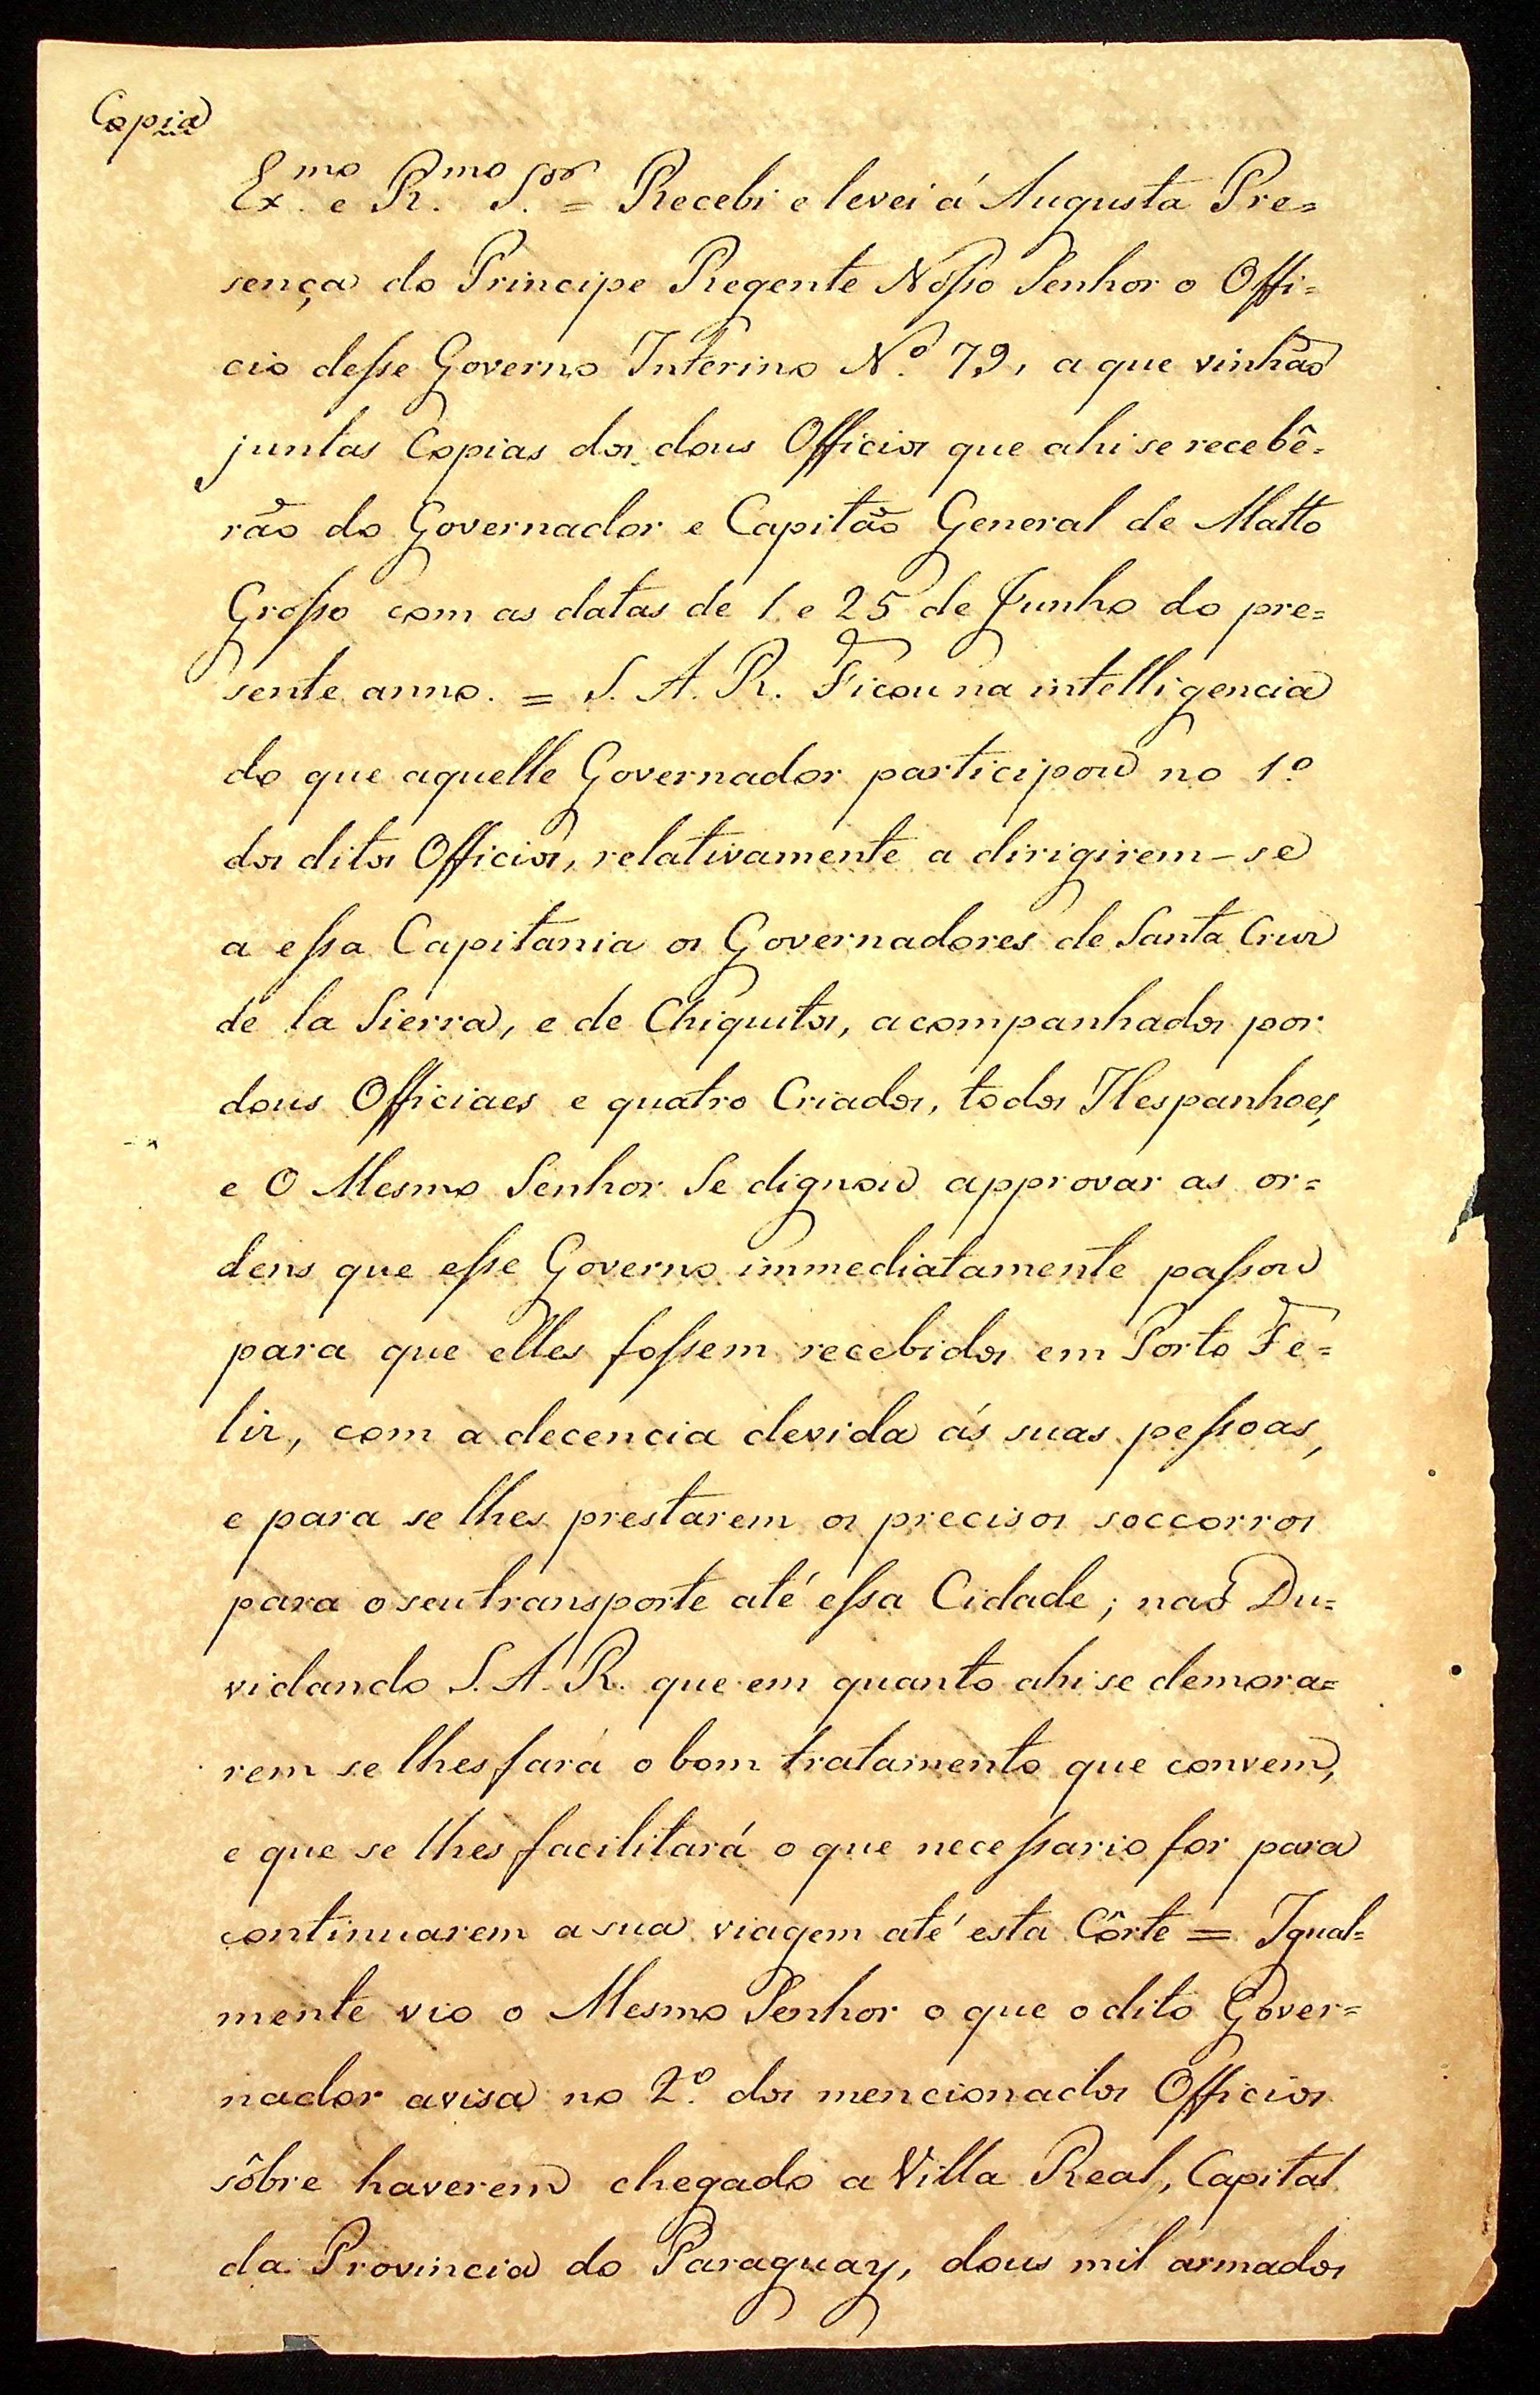 Copia
Ex.mo e R.mo S.or = Recebi e levei á Augusta Pre=
sença do Principe Regente Nosso Senhor o Offi=
cio desse Governo Interino N.o 79, a que vinhão
juntas Copias dos dous Officios que ahi se recebê=
rão do Governador e Capitão General de Matto
Grosso com as datas de 1 e 25 de Junho do pre=
sente anno. = S. A. R. Ficou na intelligencia
do que aquelle Governador participou no 1.o
dos ditos Officios, relativamente a dirigirem-se
a essa Capitania os Governadores de Santa Cruz
de la Sierra, e de Chiquitos, acompanhados por
dous Officiaes e quatro Criados, todos Hespanhoes,
e O Mesmo Senhor Se dignou approvar as or=
dens que esse Governo immediatamente passou
para que elles fossem recebidos em Porto Fe=
liz, com a decencia devida ás suas pessoas,
e para se lhes prestarem os precisos soccorros
para o seu transporte até essa Cidade; naõ Du=
vidando S. A. R. que em quanto ahi se demora=
rem se lhes fará o bom tratamento que convem,
e que se lhes facilitará o que necessario for para
continuarem a sua viagem até esta Côrte = Igual=
mente vio o Mesmo Senhor o que o dito Gover=
nador avisa no 2.o dos mencionados Officios
sôbre haverem chegado a Villa Real, Capital
da Provincia do Paraguay, dous mil armados